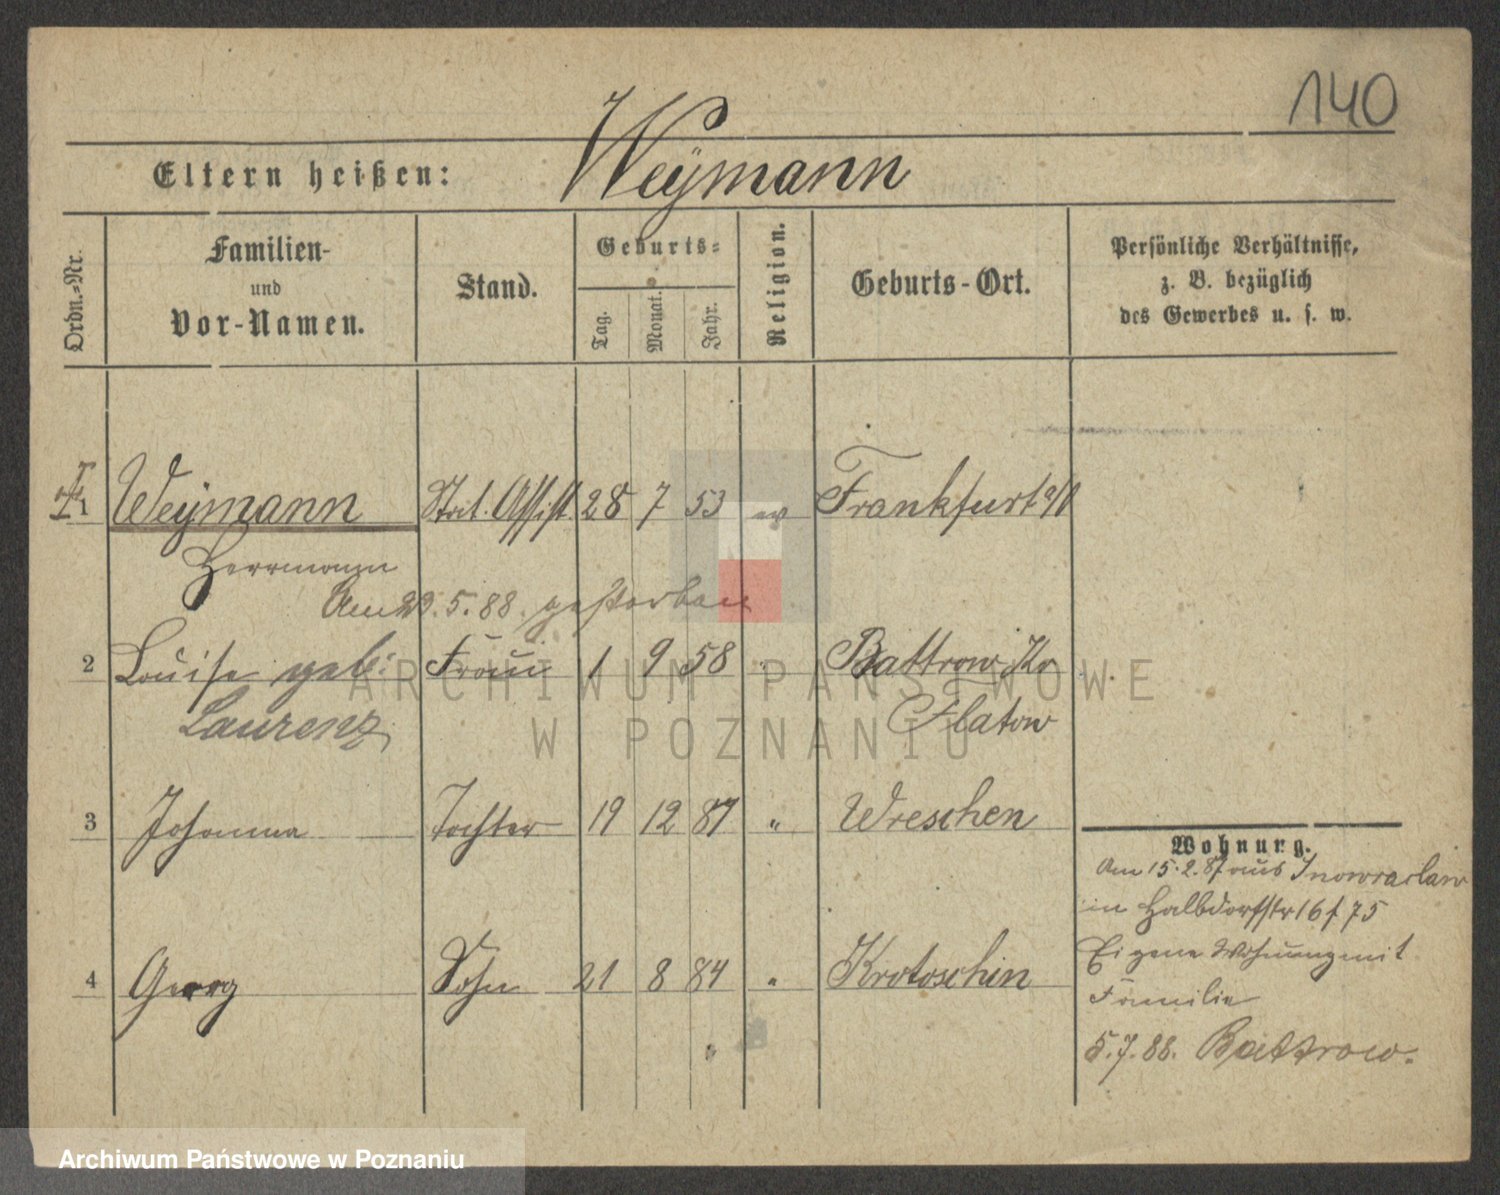 140
Eltern heißen: Weÿmann
Ordn.-Nr.
Familien-
und
Vor-Namen.
Stand.
Geburts-
Tag. Monat. Jahr.
Religion.
Geburts-Ort.
Persönliche Verhältnisse,
z. B. bezüglich
des Gewerbes u. s. w.
1 Weÿmann Stat. Assist. 28 7 53 ev Frankfurt a/O
Herrmann
Am 29.5.88. gestorben
2 Louise geb: Frau 1 9 58 " Battrow Kr
Laurenz Flatow
3 Johanna Tochter 19 12 87 " Wreschen
4 Georg Sohn 21 8 84 " Krotoschin
Wohnung.
Am 15.2.87 aus Inowraclaw
in Halbdorfstr 16 f 75
Eigene Wohnung mit
Familie
5.7.88. Battrow.
ARCHIWUM PAŃSTWOWE
W POZNANIU
Archiwum Państwowe w Poznaniu